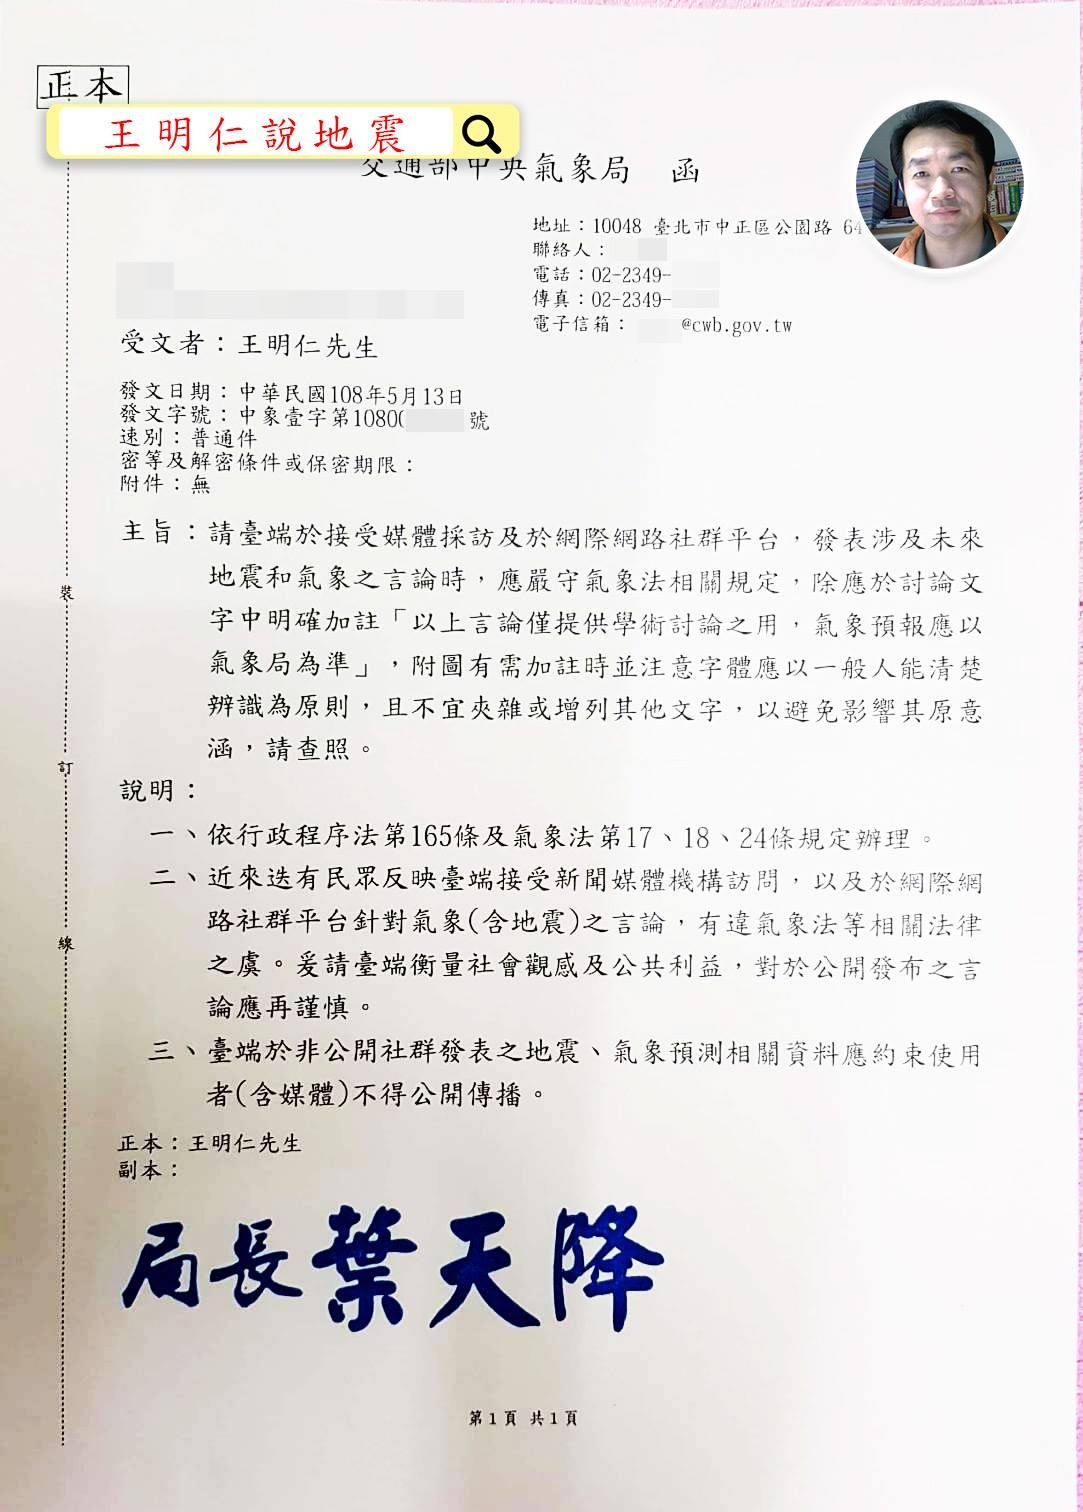 正本
王明仁說地震
交通部中央氣象局 函
地址：10048 臺北市中正區公園路 64
聯絡人：
電話：02-2349-
傳真：02-2349-
電子信箱： @cwb.gov.tw
受文者：王明仁先生
發文日期：中華民國108年5月13日
發文字號：中象壹字第10800 號
速別：普通件
密等及解密條件或保密期限：
附件：無
主旨：請臺端於接受媒體採訪及於網際網路社群平台，發表涉及未來
地震和氣象之言論時，應嚴守氣象法相關規定，除應於討論文
字中明確加註「以上言論僅提供學術討論之用，氣象預報應以
氣象局為準」，附圖有需加註時並注意字體應以一般人能清楚
辨識為原則，且不宜夾雜或增列其他文字，以避免影響其原意
涵，請查照。
說明：
一、依行政程序法第165條及氣象法第17、18、24條規定辦理。
二、近來迭有民眾反映臺端接受新聞媒體機構訪問，以及於網際網
路社群平台針對氣象(含地震)之言論，有違氣象法等相關法律
之虞。爰請臺端衡量社會觀感及公共利益，對於公開發布之言
論應再謹慎。
三、臺端於非公開社群發表之地震、氣象預測相關資料應約束使用
者(含媒體)不得公開傳播。
正本：王明仁先生
副本：
局長葉天降
第1頁 共1頁
裝
訂
線